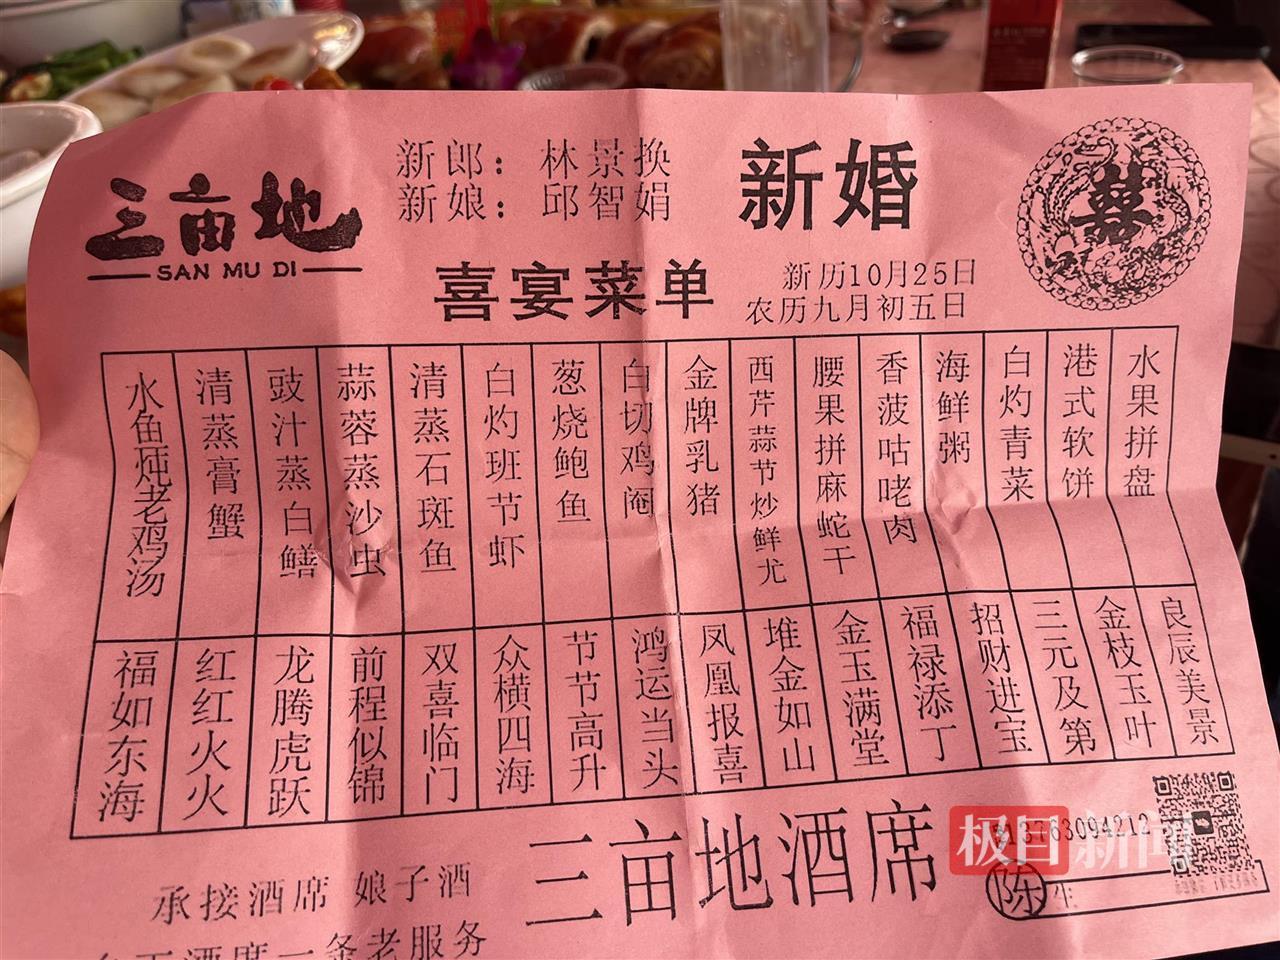 三亩地
SAN MU DI
新郎：林景换
新娘：邱智娟
新婚
囍
喜宴菜单
新历10月25日
农历九月初五日
水鱼炖老鸡汤
清蒸膏蟹
豉汁蒸白鳝
蒜蓉蒸沙虫
清蒸石斑鱼
白灼班节虾
葱烧鲍鱼
白切鸡阉
金牌乳猪
西芹蒜节炒鲜尤
腰果拼麻蛇干
香菠咕咾肉
海鲜粥
白灼青菜
港式软饼
水果拼盘
福如东海
红红火火
龙腾虎跃
前程似锦
双喜临门
众横四海
节节高升
鸿运当头
凤凰报喜
堆金如山
金玉满堂
福禄添丁
招财进宝
三元及第
金枝玉叶
良辰美景
三亩地酒席
13763094212
陈生
极目新闻
承接酒席 娘子酒
酒席一条老服务